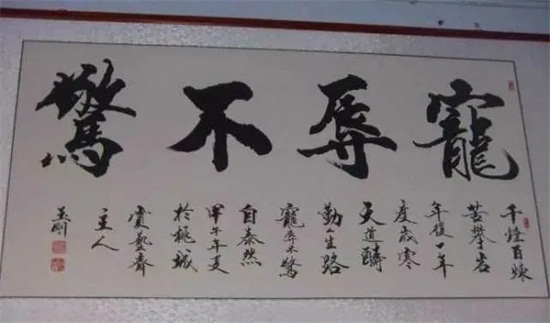 寵辱不驚
千錘百煉
苦攀岩
年復一年
度歲寒
天道酬
勤人生路
寵辱不驚
自泰然
甲午年夏
於城
藝齋
主人
玉剛